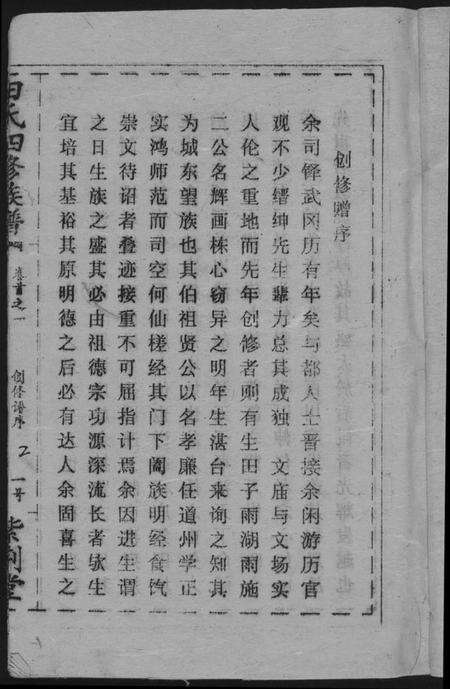 创修赠序
余司铎武冈历有年矣与都人士晋接余闲游历官
观不少缙绅先生辈力总其成独 文庙与文场实
人伦之重地而先年创修者则有生田子雨湖雨施
二公名辉画栋心窃异之明年生湛台来询之知其
为城东望族也其伯祖贤公以名孝廉任道州学正
实鸿师范而司空何仙槎经其门下阖族明经食饩
崇文待诏者叠迹接重不可屈指计焉余因进生谓
之日生族之盛其必由祖德宗功源深流长者欤生
宜培其基裕其原明德之后必有达人余固喜生之
氏四修族谱
卷首之一
创修谱序
一号
紫荆堂